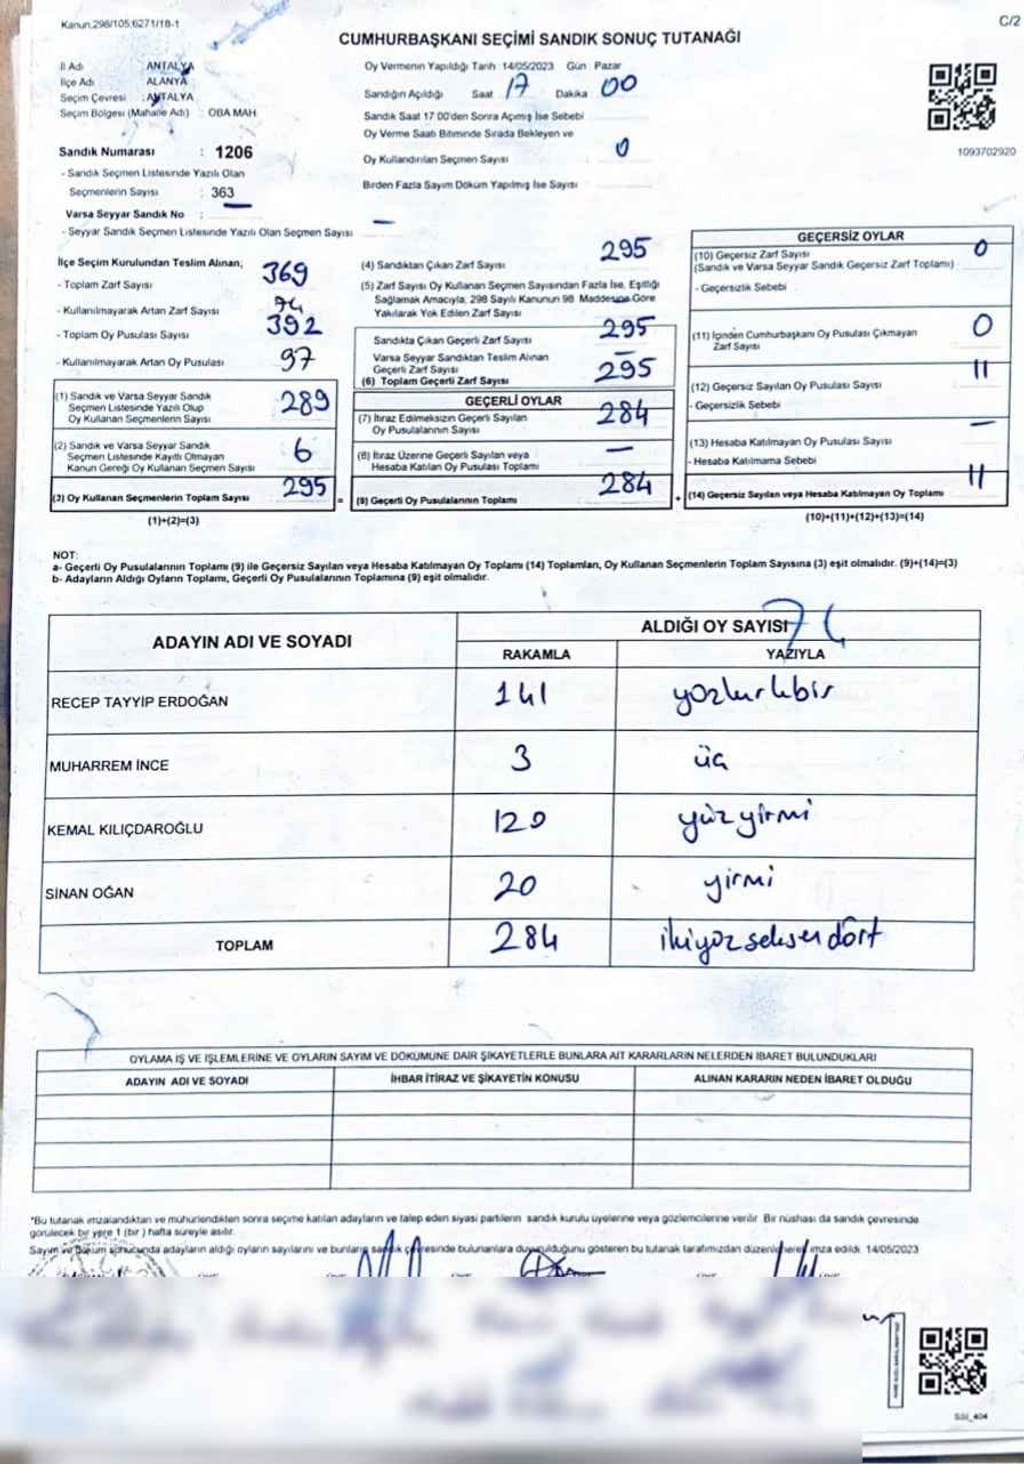 Kanun.298/105;6271/18-1
C/2
CUMHURBAŞKANI SEÇİMİ SANDIK SONUÇ TUTANAĞI
İl Adı : ANTALYA
İlçe Adı : ALANYA
Seçim Çevresi : ANTALYA
Seçim Bölgesi (Mahalle Adı) : OBA MAH
Sandık Numarası : 1206
- Sandık Seçmen Listesinde Yazılı Olan
Seçmenlerin Sayısı : 363
Varsa Seyyar Sandık No :
- Seyyar Sandık Seçmen Listesinde Yazılı Olan Seçmen Sayısı —
Oy Vermenin Yapıldığı Tarih :14/05/2023 Gün Pazar
Sandığın Açıldığı Saat 17 Dakika 00
Sandık Saat 17 00'den Sonra Açımış İse Sebebi
Oy Verme Saati Bitiminde Sırada Bekleyen ve
Oy Kullandırılan Seçmen Sayısı 0
Birden Fazla Sayım Döküm Yapılmış İse Sayısı
1093702920
İlçe Seçim Kurulundan Teslim Alınan;
- Toplam Zarf Sayısı 369
- Kullanılmayarak Artan Zarf Sayısı 74
- Toplam Oy Pusulası Sayısı 392
- Kullanılmayarak Artan Oy Pusulası 97
(1) Sandık ve Varsa Seyyar Sandık
Seçmen Listesinde Yazılı Olup
Oy Kullanan Seçmenlerin Sayısı 289
(2) Sandık ve Varsa Seyyar Sandık
Seçmen Listesinde Kayıtlı Olmayan
Kanun Gereği Oy Kullanan Seçmen Sayısı 6
(3) Oy Kullanan Seçmenlerin Toplam Sayısı 295
(1)+(2)=(3)
(4) Sandıktan Çıkan Zarf Sayısı 295
(5) Zarf Sayısı Oy Kullanan Seçmen Sayısından Fazla İse, Eşitliği
Sağlamak Amacıyla, 298 Sayılı Kanunun 98. Maddesine Göre
Yakılarak Yok Edilen Zarf Sayısı
Sandıkta Çıkan Geçerli Zarf Sayısı 295
Varsa Seyyar Sandıktan Teslim Alınan
Geçerli Zarf Sayısı —
(6) Toplam Geçerli Zarf Sayısı 295
GEÇERLİ OYLAR
(7) İtiraz Edilmeksizin Geçerli Sayılan
Oy Pusulalarının Sayısı 284
(8) İtiraz Üzerine Geçerli Sayılan veya
Hesaba Katılan Oy Pusulası Toplamı —
= (9) Geçerli Oy Pusulalarının Toplamı 284
GEÇERSİZ OYLAR
(10) Geçersiz Zarf Sayısı 0
(Sandık ve Varsa Seyyar Sandık Geçersiz Zarf Toplamı)
- Geçersizlik Sebebi
(11) İçinden Cumhurbaşkanı Oy Pusulası Çıkmayan
Zarf Sayısı 0
(12) Geçersiz Sayılan Oy Pusulası Sayısı 11
- Geçersizlik Sebebi
(13) Hesaba Katılmayan Oy Pusulası Sayısı —
- Hesaba Katılmama Sebebi
+ (14) Geçersiz Sayılan veya Hesaba Katılmayan Oy Toplamı 11
(10)+(11)+(12)+(13)=(14)
NOT:
a- Geçerli Oy Pusulalarının Toplamı (9) ile Geçersiz Sayılan veya Hesaba Katılmayan Oy Toplamı (14) Toplamları, Oy Kullanan Seçmenlerin Toplam Sayısına (3) eşit olmalıdır. (9)+(14)=(3)
b- Adayların Aldığı Oyların Toplamı, Geçerli Oy Pusulalarının Toplamına (9) eşit olmalıdır.
ADAYIN ADI VE SOYADI
ALDIĞI OY SAYISI
RAKAMLA YAZIYLA
RECEP TAYYİP ERDOĞAN 141 yozkırkbir
MUHARREM İNCE 3 üç
KEMAL KILIÇDAROĞLU 120 yüzyirmi
SİNAN OĞAN 20 yirmi
TOPLAM 284 ikiyozseksendört
OYLAMA İŞ VE İŞLEMLERİNE VE OYLARIN SAYIM VE DÖKÜMÜNE DAİR ŞİKAYETLERLE BUNLARA AİT KARARLARIN NELERDEN İBARET BULUNDUKLARI
ADAYIN ADI VE SOYADI İHBAR İTİRAZ VE ŞİKAYETİN KONUSU ALINAN KARARIN NEDEN İBARET OLDUĞU
*Bu tutanak imzalandıktan ve mühürlendikten sonra seçime katılan adayların ve talep eden siyasi partilerin sandık kurulu üyelerine veya gözlemcilerine verilir. Bir nüshası da sandık çevresinde
görülecek bir yere 1 (bir ) hafta süreyle asılır.
Sayım ve döküm sonucunda adayların aldığı oyların sayılarını ve bunların sandık çevresinde bulunanlara duyurulduğunu gösteren bu tutanak tarafımızdan düzenlenerek imza edildi. 14/05/2023